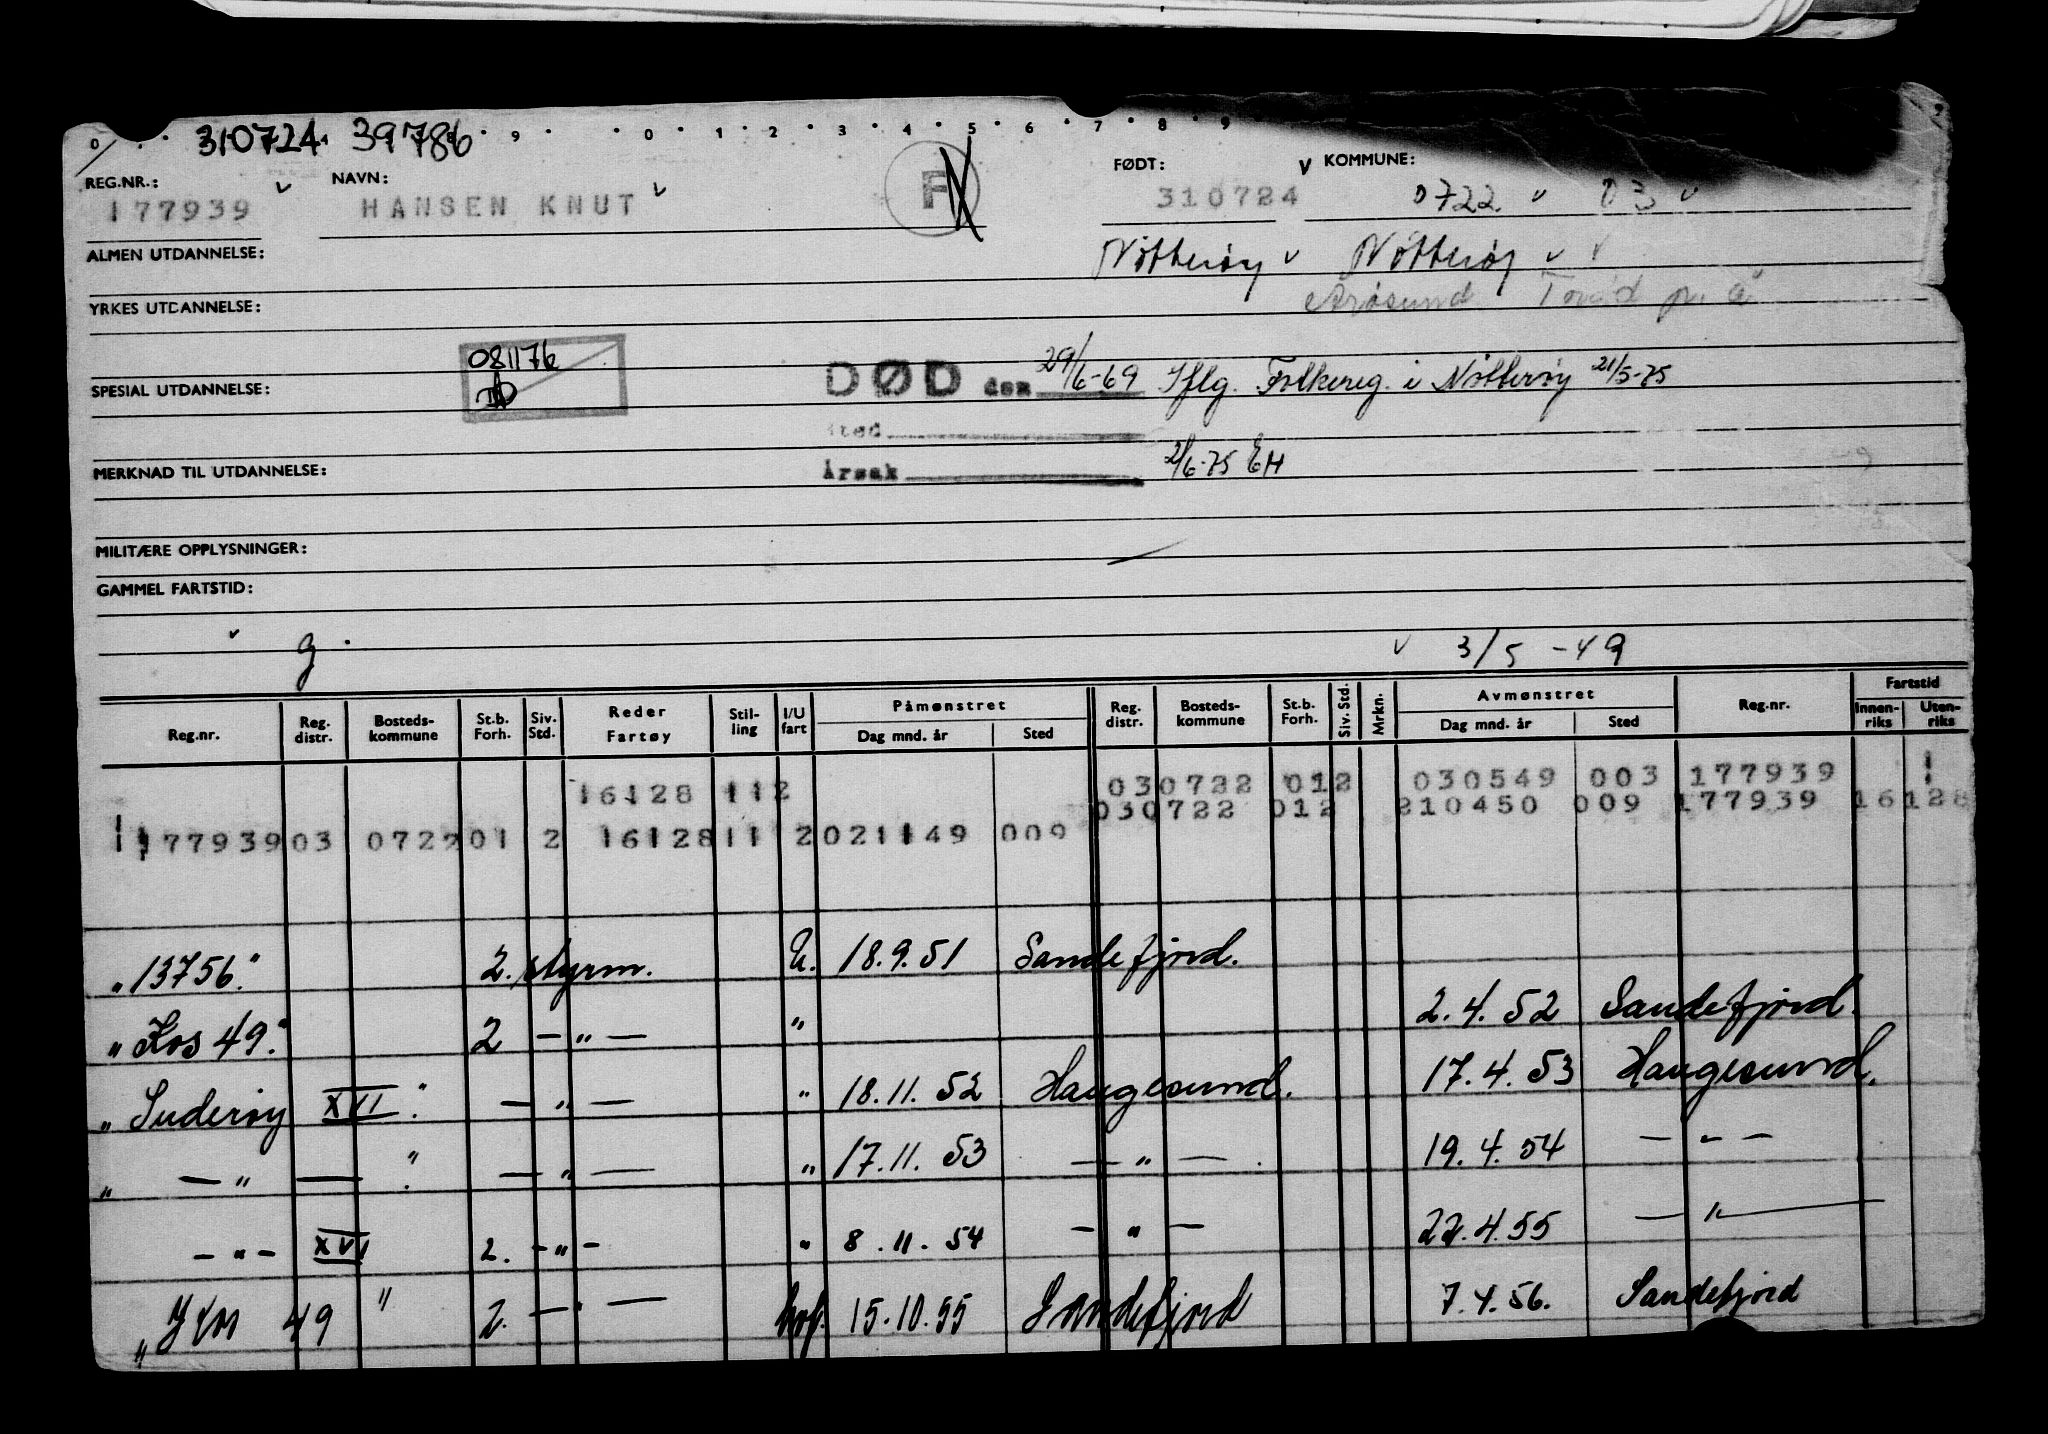 310724 39786
0 9 0 1 2 3 4 5 6 7 8 9
REG.NR.: NAVN: FØDT: KOMMUNE:
177939 HANSEN KNUT F 310724 0722 03
ALMEN UTDANNELSE: Nøtterøy Nøtterøy
YRKES UTDANNELSE: Årøsund
081176
SPESIAL UTDANNELSE: DØD den 29/6-69 Iflg. Folkereg. i Nøtterøy 21/5-75
Sted
MERKNAD TIL UTDANNELSE: Årsak 2/6-75 EH
MILITÆRE OPPLYSNINGER:
GAMMEL FARTSTID:
g. 3/5-49
Reg.nr. Reg. distr. Bosteds- kommune St.b. Forh. Siv. Std. Reder Fartøy Stil- ling I/U fart Påmønstret Dag mnd. år Sted Reg. distr. Bosteds- kommune St.b. Forh. Siv. Std. Mrkn. Avmønstret Dag mnd. år Sted Reg.nr. Fartstid Innen- riks Uten- riks
16128 112 030722 012 030549 003 177939
030722 012 210450 009 177939 16128
177939 03 0722 01 2 16128 11 2 021149 009
"13756" 2. styrm. U. 18.9.51 Sandefjord.
"Kos 49." 2 — " — " 2.4.52 Sandefjord.
"Suderøy XVI." — " — " 18.11.52 Haugesund. 17.4.53 Haugesund.
" — " — " — " — " 17.11.53 — " — . 19.4.54 — " —
— " — XVI 2. — " — " 8.11.54 — " — 22.4.55 — " —
"Kos 49" 2. — " — 15.10.55 Sandefjord 7.4.56. Sandefjord